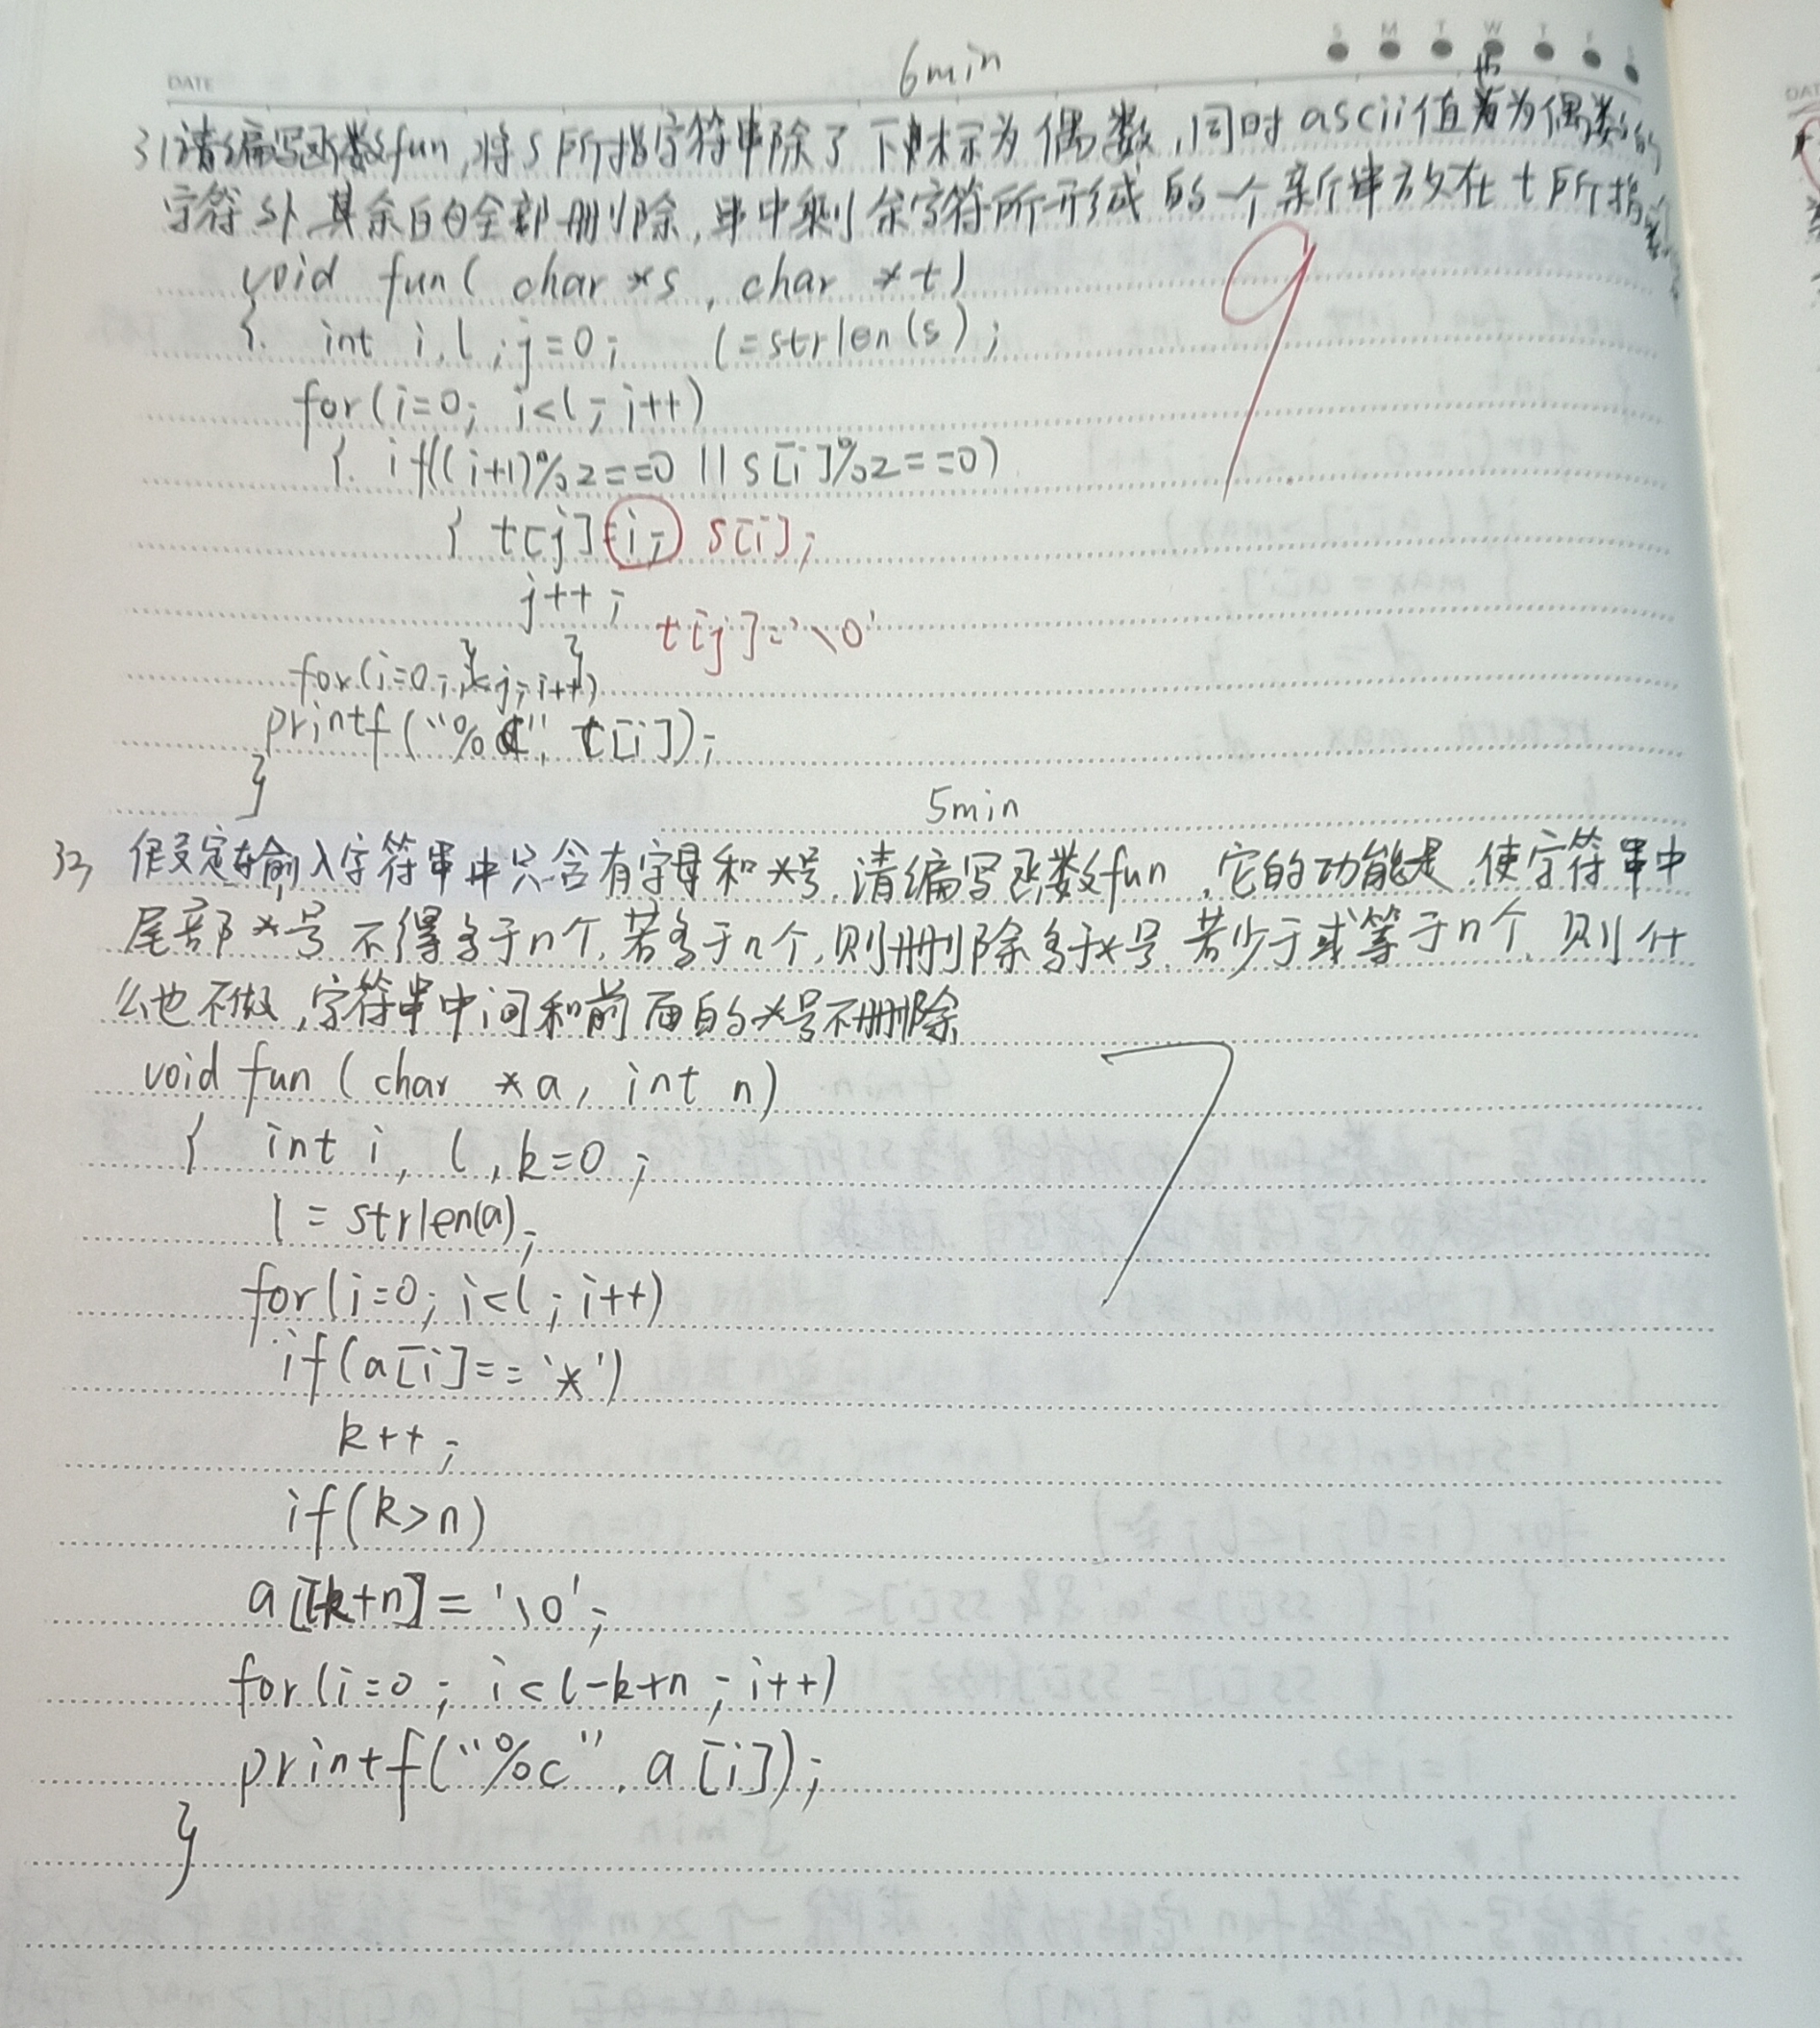 S M T W T F S
DATE
6min
31)请编写函数fun,将s所指字符串除了下标为偶数,同时ascii值为偶数的
字符外,其余的全部删除,串中剩余字符所形成的一个新串放在t所指
void fun( char *s, char *t)
{ int i,l,j=0; l=strlen(s);
for(i=0; i<l; i++)
{ if((i+1)%2==0 || s[i]%2==0)
{ t[j]=i; s[i];
j++;
t[j]='\0'
} }
for(i=0;i<j;i++)
printf("%c", t[i]);
}
9
5min
32) 假定输入字符串中只含有字母和*号,请编写函数fun,它的功能是,使字符串中
尾部*号不得多于n个,若多于n个,则删除多于*号,若少于或等于n个,则什
么也不做,字符串中间和前面的*号不删除
void fun( char *a, int n)
{ int i, l, k=0;
l = strlen(a);
for(i=0; i<l; i++)
if(a[i]=='*')
k++;
if(k>n)
a[l-k+n]='\0';
for(i=0; i<l-k+n; i++)
printf("%c", a[i]);
}
7